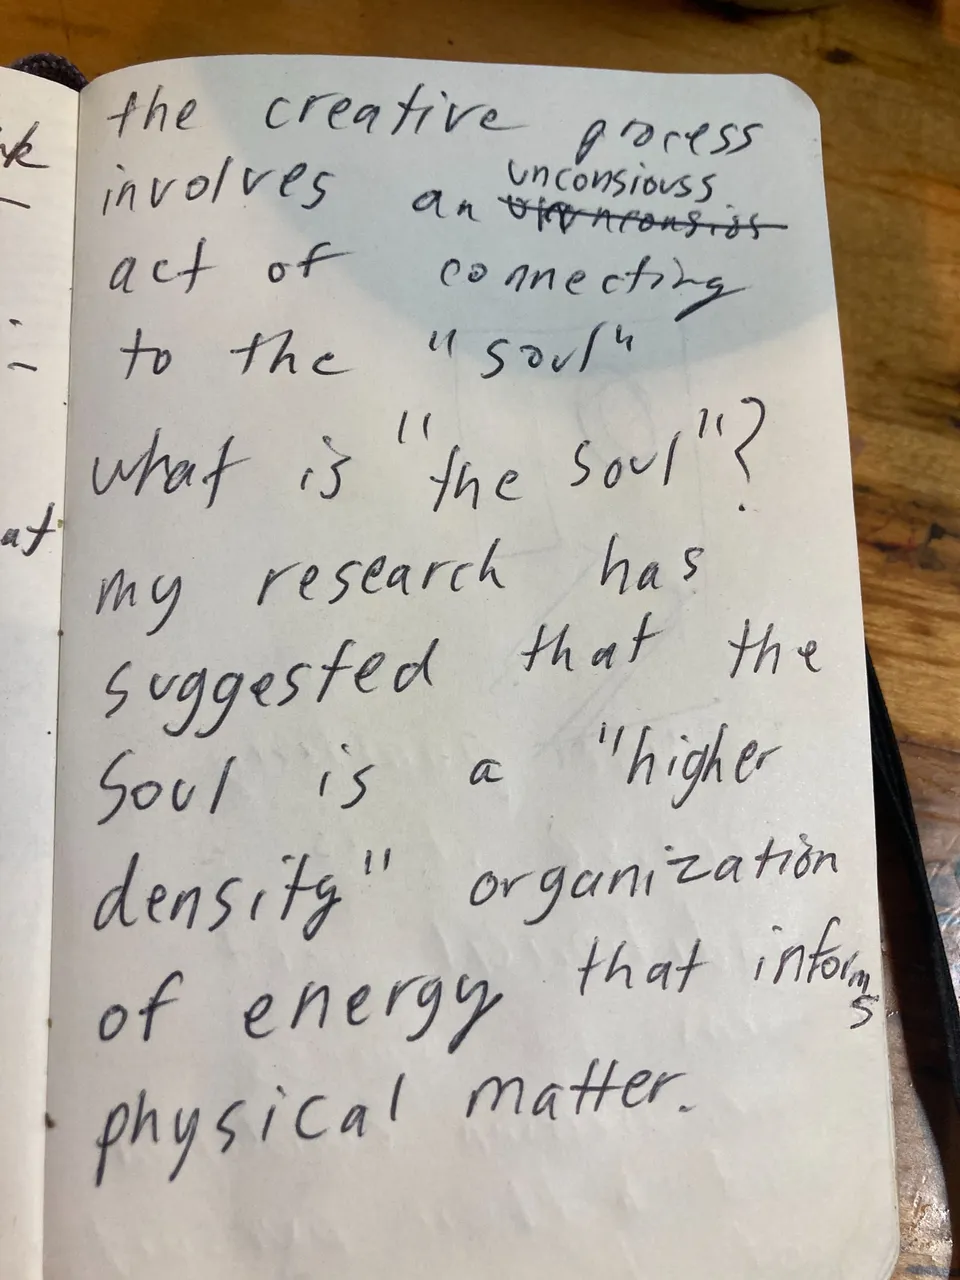 the creative process
involves an unconsiouss
act of connecting
to the "soul"
what is "the soul"?
my research has
suggested that the
Soul is a "higher
density" organization
of energy that informs
physical matter.
at